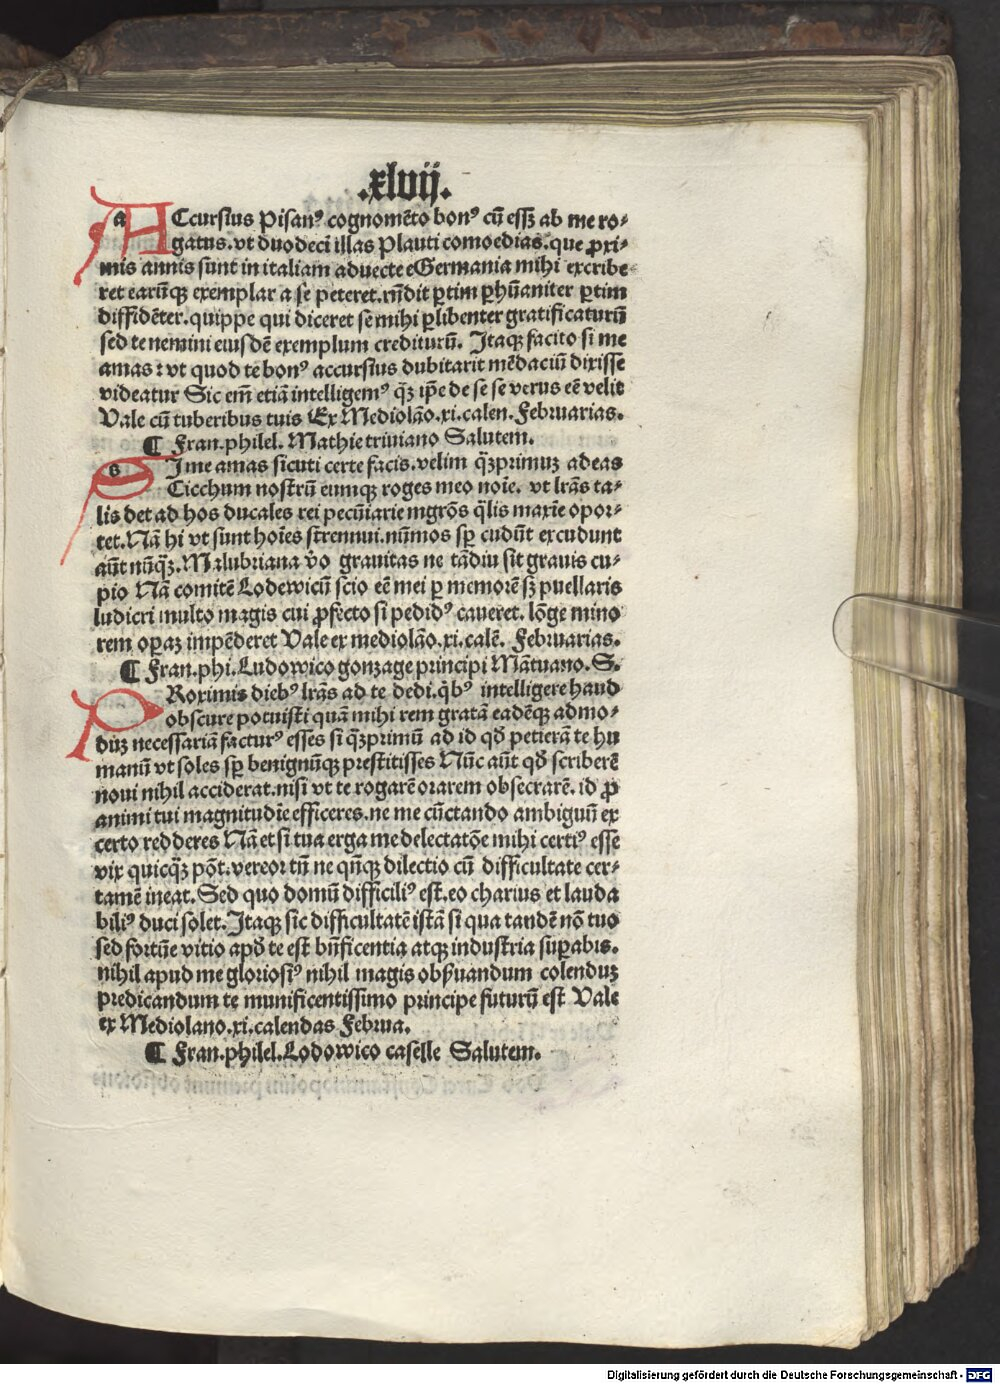 .xlvij.
ACcursius Pisanꝰ cognomēto bonꝰ cū essꝫ ab me ro⸗
gatus.vt duodeci illas Plauti comoedias.que ꝓxi⸗
mis annis sunt in italiam aduecte eGermania mihi excribe⸗
ret earūqꝫ exemplar a se peteret.rn̄dit ꝑtim ꝑhūaniter ꝑtim
diffidēter.quippe qui diceret se mihi ꝑlibenter gratificaturū
sed te nemini eiusdē exemplum crediturū. Itaqꝫ facito si me
amas : vt quod te bonꝰ accursius dubitarit mēdaciū dixisse
videatur Sic em̄ etiā intelligemꝰ qꝫ̄ ip̄e de se se verus eē velit
Vale cū tuberibus tuis Ex Mediolāo.xi.calen.Februarias.
¶ Fran.philel. Mathie triuiano Salutem.
SI me amas sicuti certe facis.velim qꝫ̄primuꝫ adeas
Cicchum nostrū eumqꝫ roges meo noīe. vt lr̄as ta⸗
lis det ad hos ducales rei pecūiarie mgr̄os q̄lis maxīe opor⸗
tet.Nā hi vt sunt hoīes strennui.nūmos sꝑ cudūt excudunt
aūt nūqꝫ̄.Malubriana v̄o grauitas ne tādiu sit grauis cu⸗
pio Nā comitē Lodewicū scio eē mei ꝑ memorē sꝫ puellaris
ludicri multo magis cui ꝓfecto si pedidꝰ caueret. lōge mino
rem opaꝫ impēderet Vale ex mediolāo.xi.calē. Februarias.
¶ Fran.phi.Ludowico gonzage principi Mātuano.S.
PRoximis diebꝰ lr̄as ad te dedi.q̄bꝰ intelligere haud
obscure potuisti quā mihi rem gratā eadēqꝫ admo⸗
dūꝫ necessariā facturꝰ esses si qꝫ̄primū ad id qd̄ petierā te hu
manū vt soles sꝑ benignūqꝫ prestitisses Nūc aūt qd̄ scriberē
noui nihil acciderat.nisi vt te rogarē orarem obsecrarē. id ꝓ
animi tui magnitudīe efficeres.ne me cūctando ambiguū ex
certo redderes Nā et si tua erga me delectatōe mihi certiꝰ esse
vix quicqꝫ̄ pōt.vereor tn̄ ne qn̄qꝫ dilectio cū difficultate cer⸗
tamē ineat.Sed quo domū difficiliꝰ est.eo charius et lauda
biliꝰ duci solet.Itaqꝫ sic difficultatē istā si qua tandē nō tuo
sed fortūe vitio apd̄ te est bn̄ficentia atqꝫ industria suꝑabis.
nihil apud me gloriosiꝰ nihil magis obẜuandum colenduꝫ
predicandum te munificentissimo principe futurū est Vale
ex Mediolano.xi.calendas Februa.
¶ Fran.philel.Lodowico caselle Salutem.
Digitalisierung gefördert durch die Deutsche Forschungsgemeinschaft - DFG